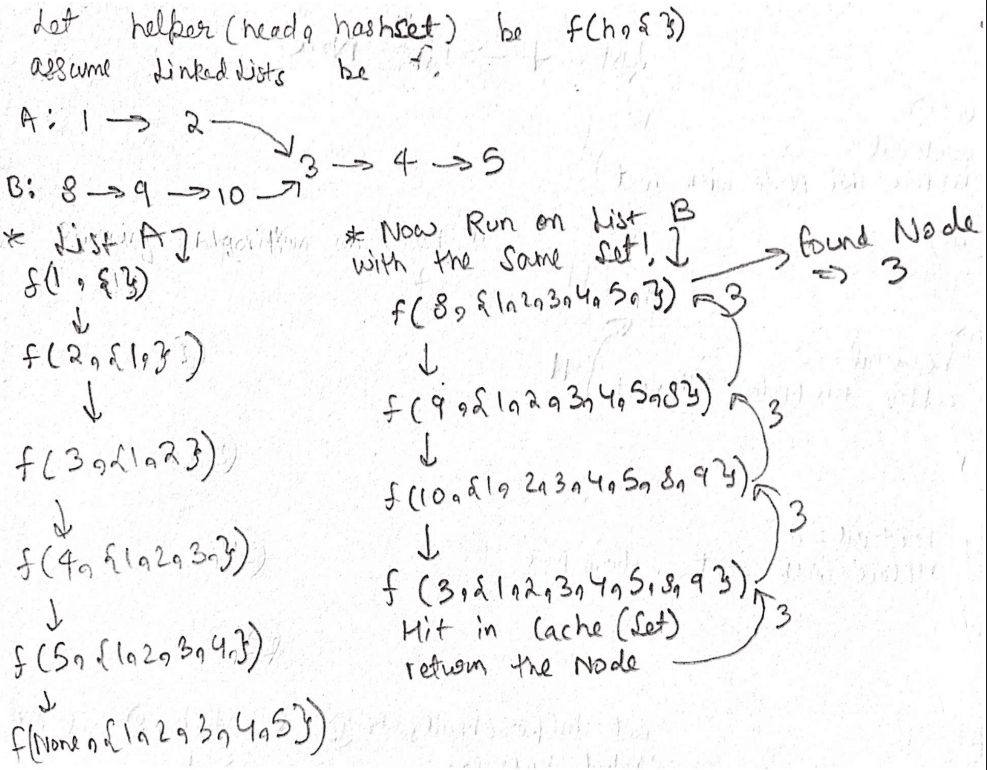 Let helper(head, hashset) be f(h,{})
assume Linked Lists be
A: 1 → 2
3 → 4 → 5
B: 8 → 9 → 10
* List A
f(1, {1})
f(2, {1,})
f(3, {1,2})
f(4, {1,2,3,})
f(5, {1,2,3,4,})
f(None, {1,2,3,4,5})
* Now Run on List B
with the Same Set!
f(8, {1,2,3,4,5,})
f(9, {1,2,3,4,5,8})
f(10, {1, 2,3,4,5,8,9})
f(3,{1,2,3,4,5,8,9})
Hit in Cache (Set)
return the Node
3
3
3
3
found Node
⇒ 3